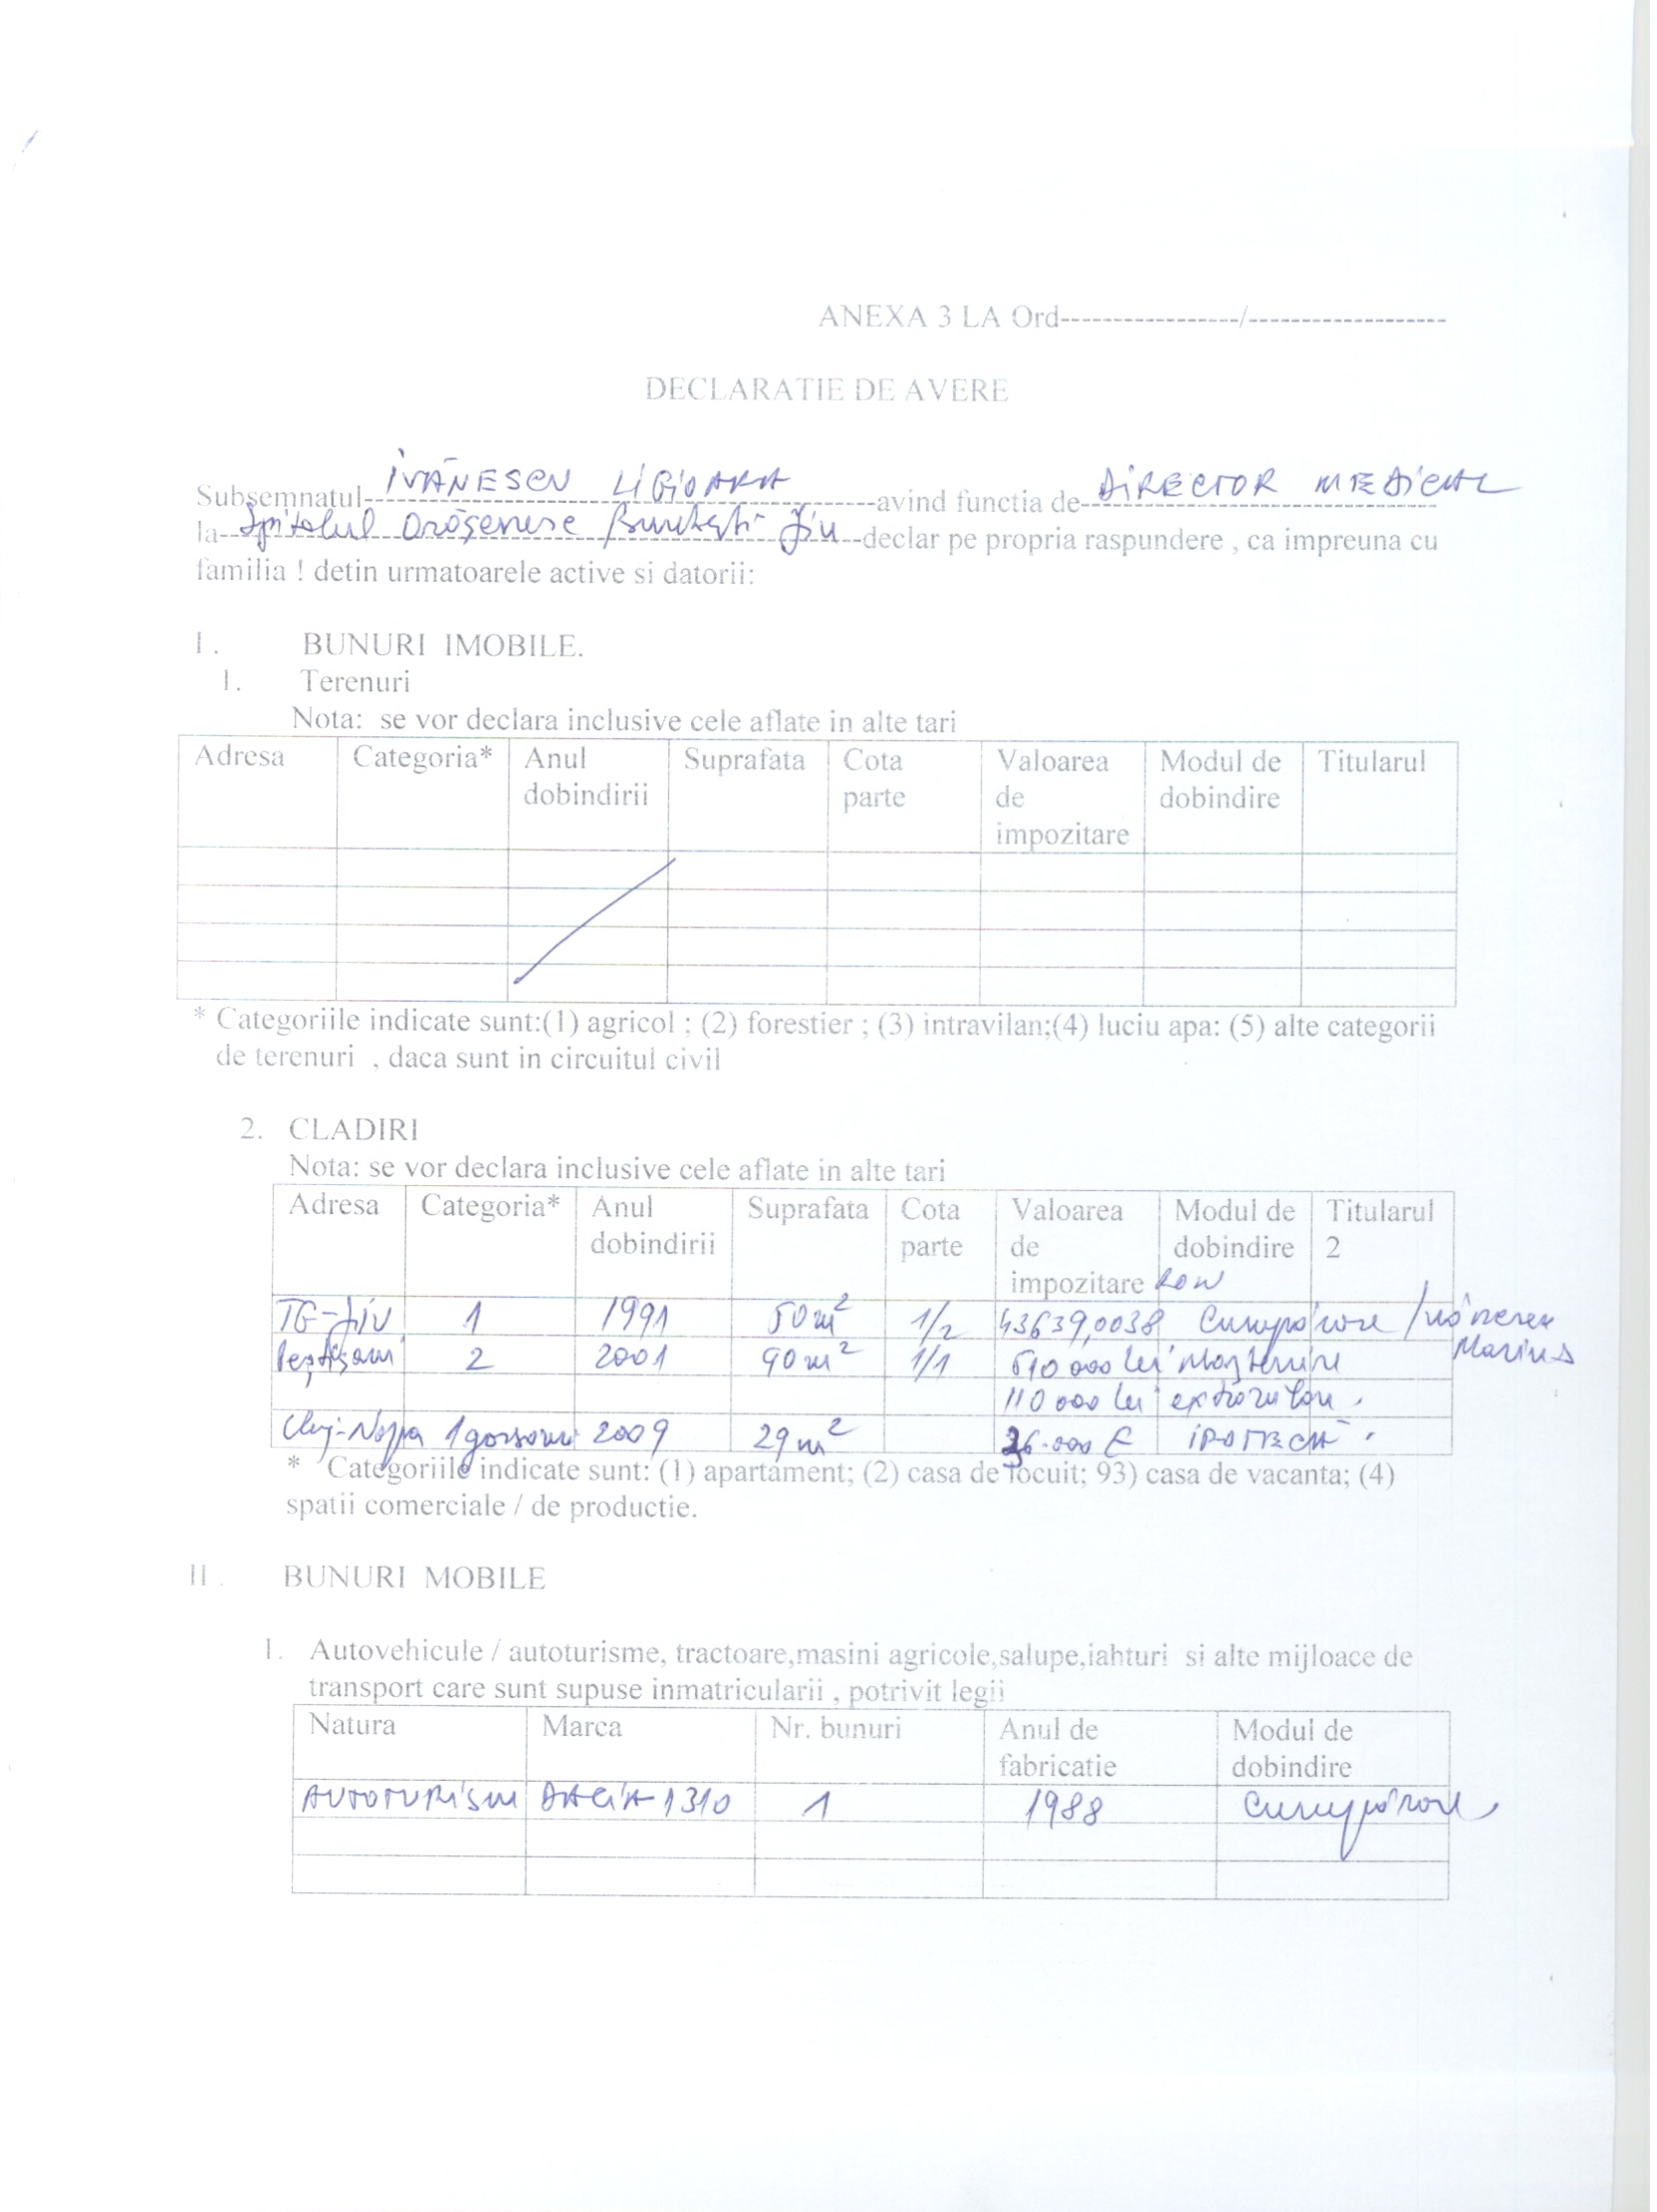 ANEXA 3 LA Ord-----------------/-------------------
DECLARATIE DE AVERE
Subsemnatul IVĂNESCU LIGIOARA avind functia de DIRECTOR MEDICAL
la Spitalul Orăşenesc Bumbeşti Jiu declar pe propria raspundere , ca impreuna cu
familia ! detin urmatoarele active si datorii:
I . BUNURI IMOBILE.
1. Terenuri
Nota: se vor declara inclusive cele aflate in alte tari
Adresa Categoria* Anul dobindirii Suprafata Cota parte Valoarea de impozitare Modul de dobindire Titularul
* Categoriile indicate sunt:(1) agricol ; (2) forestier ; (3) intravilan;(4) luciu apa: (5) alte categorii
de terenuri , daca sunt in circuitul civil
2. CLADIRI
Nota: se vor declara inclusive cele aflate in alte tari
Adresa Categoria* Anul dobindirii Suprafata Cota parte Valoarea de impozitare RON Modul de dobindire Titularul 2
TG-JIU 1 1991 50 m² 1/2 43639,0038 Cumpărare / Marius
Peştişani 2 2001 90 m² 1/1 610 000 lei moştenire
110 000 lei
Cluj-Napoca 1 2009 29 m² 36.000 € IPOTECĂ
* Categoriile indicate sunt: (1) apartament; (2) casa de locuit; 93) casa de vacanta; (4)
spatii comerciale / de productie.
II . BUNURI MOBILE
1. Autovehicule / autoturisme, tractoare,masini agricole,salupe,iahturi si alte mijloace de
transport care sunt supuse inmatricularii , potrivit legii
Natura Marca Nr. bunuri Anul de fabricatie Modul de dobindire
AUTOTURISM DACIA 1310 1 1988 Cumpărare